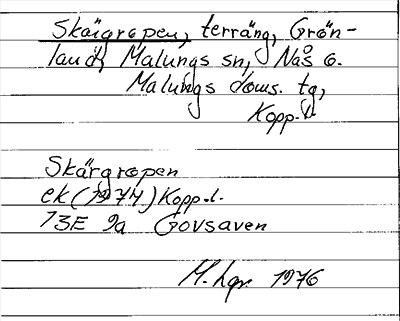 Skärgropen, terräng, Grön-
land, Malungs sn, Nås o.
Malungs doms. tg,
Kopp. l.
Skärgropen
ek (1974) Kopp. l.
13E 9a Govsaven
M. hgr 1976